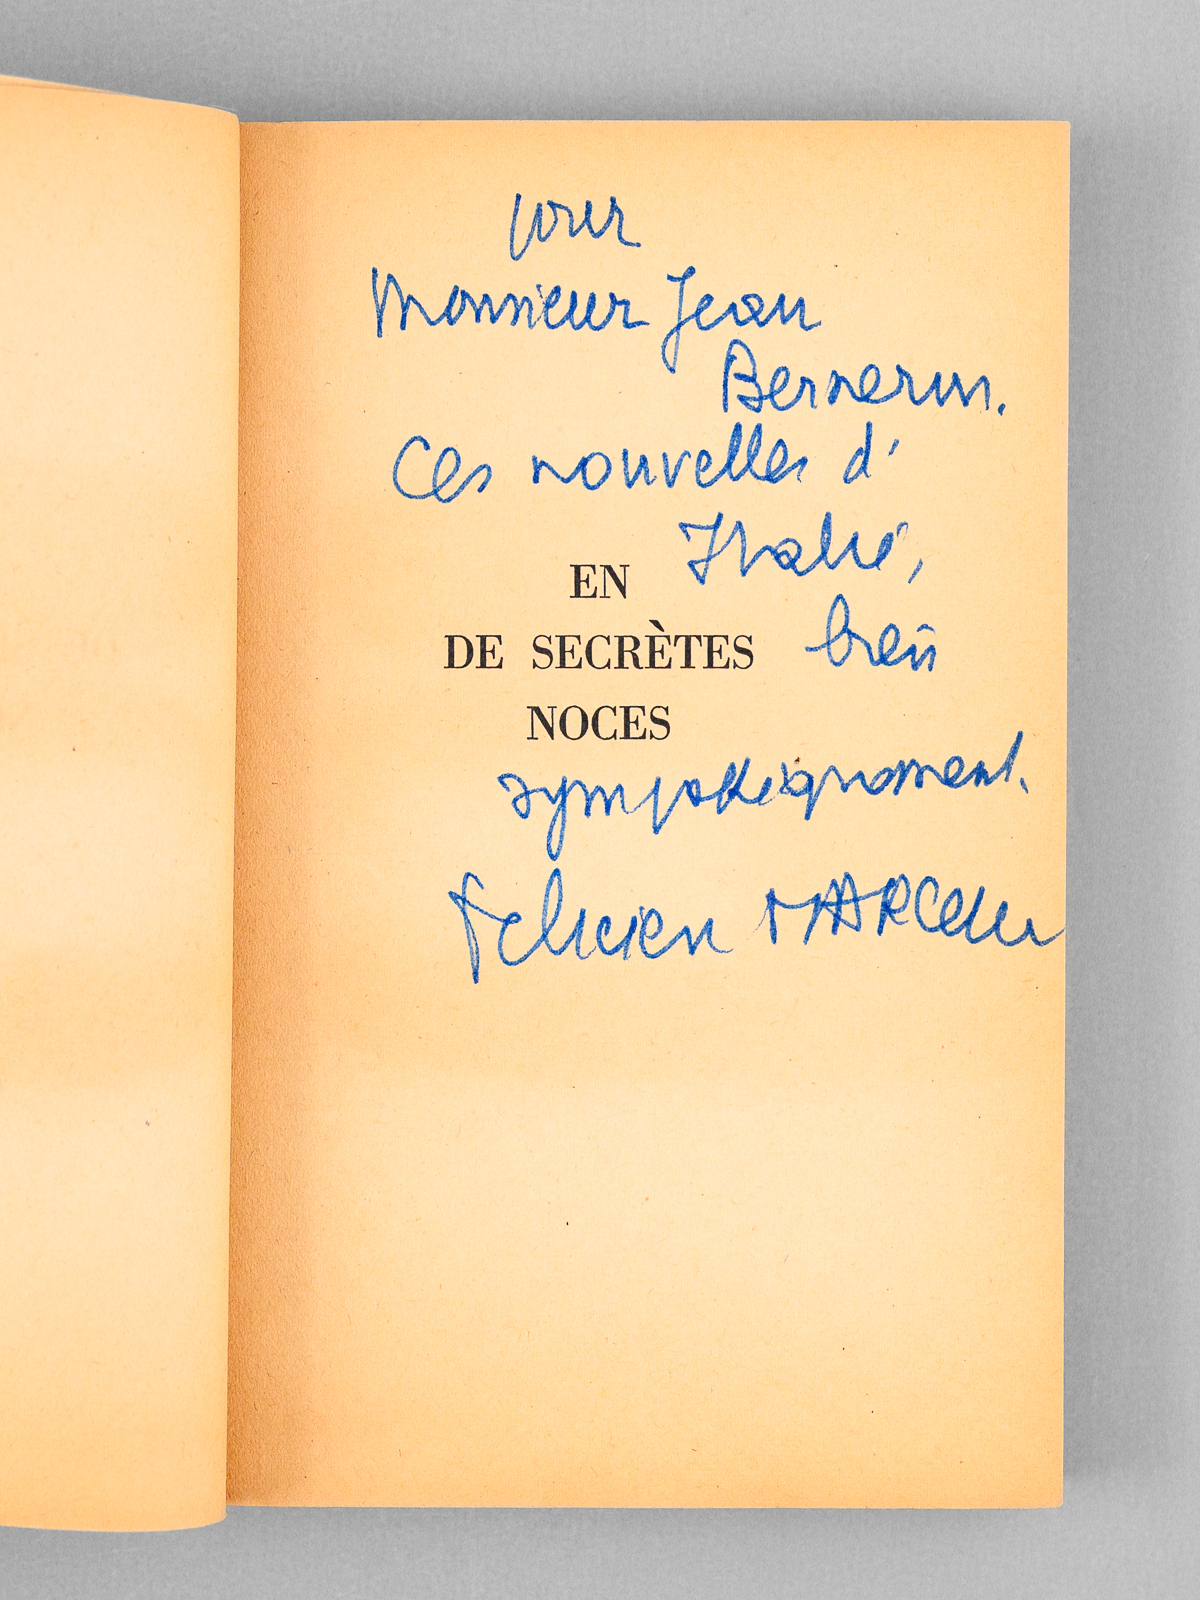 pour
Monsieur Jean
Bernerin.
Ces nouvelles d'
Italie,
EN
DE SECRÈTES
bien
NOCES
sympathiquement.
Felicien MARCEAU